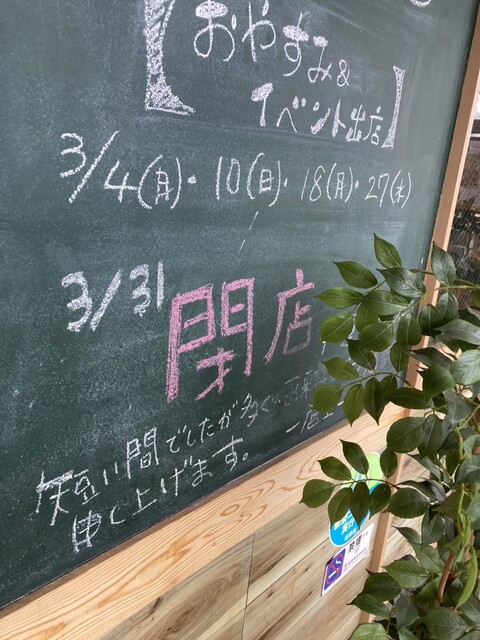 【おやすみ&
イベント出店】
3/4(月)・10(日)・18(月)・27(水)
3/31 閉店
短い間でしたが多くの
申し上げます。
禁煙